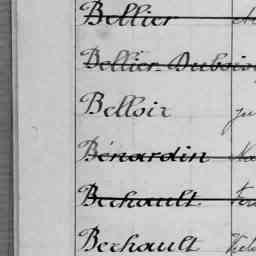 Bellier
Bellier-Dubois
Belloir
Bénardin
Bechault
Bechault